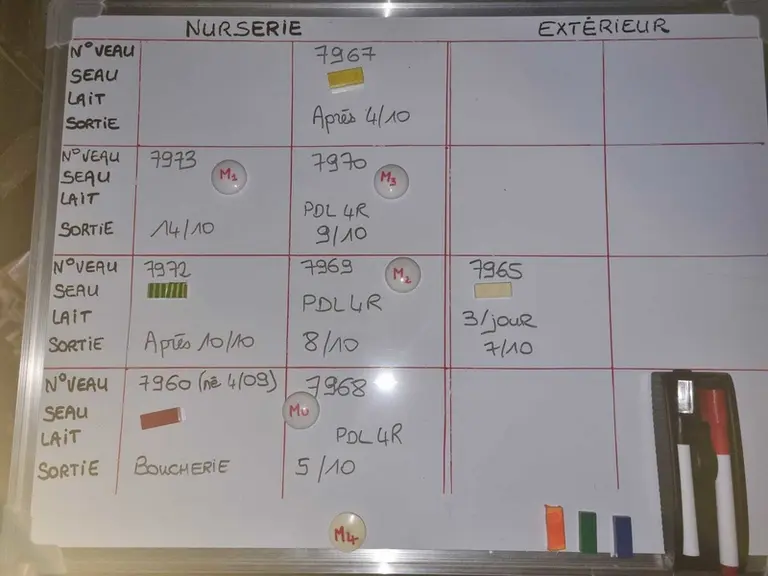 NURSERIE EXTÉRIEUR
N°VEAU 7967
SEAU
LAIT
SORTIE Après 4/10
N°VEAU 7973 7970
SEAU M1 M3
LAIT PDL 4R
SORTIE 14/10 9/10
N°VEAU 7972 7969 7965
SEAU M2
LAIT PDL 4R 3/jour
SORTIE Après 10/10 8/10 7/10
N°VEAU 7960 (né 4/09) 7968
SEAU
LAIT PDL 4R
SORTIE BOUCHERIE 5/10
M4